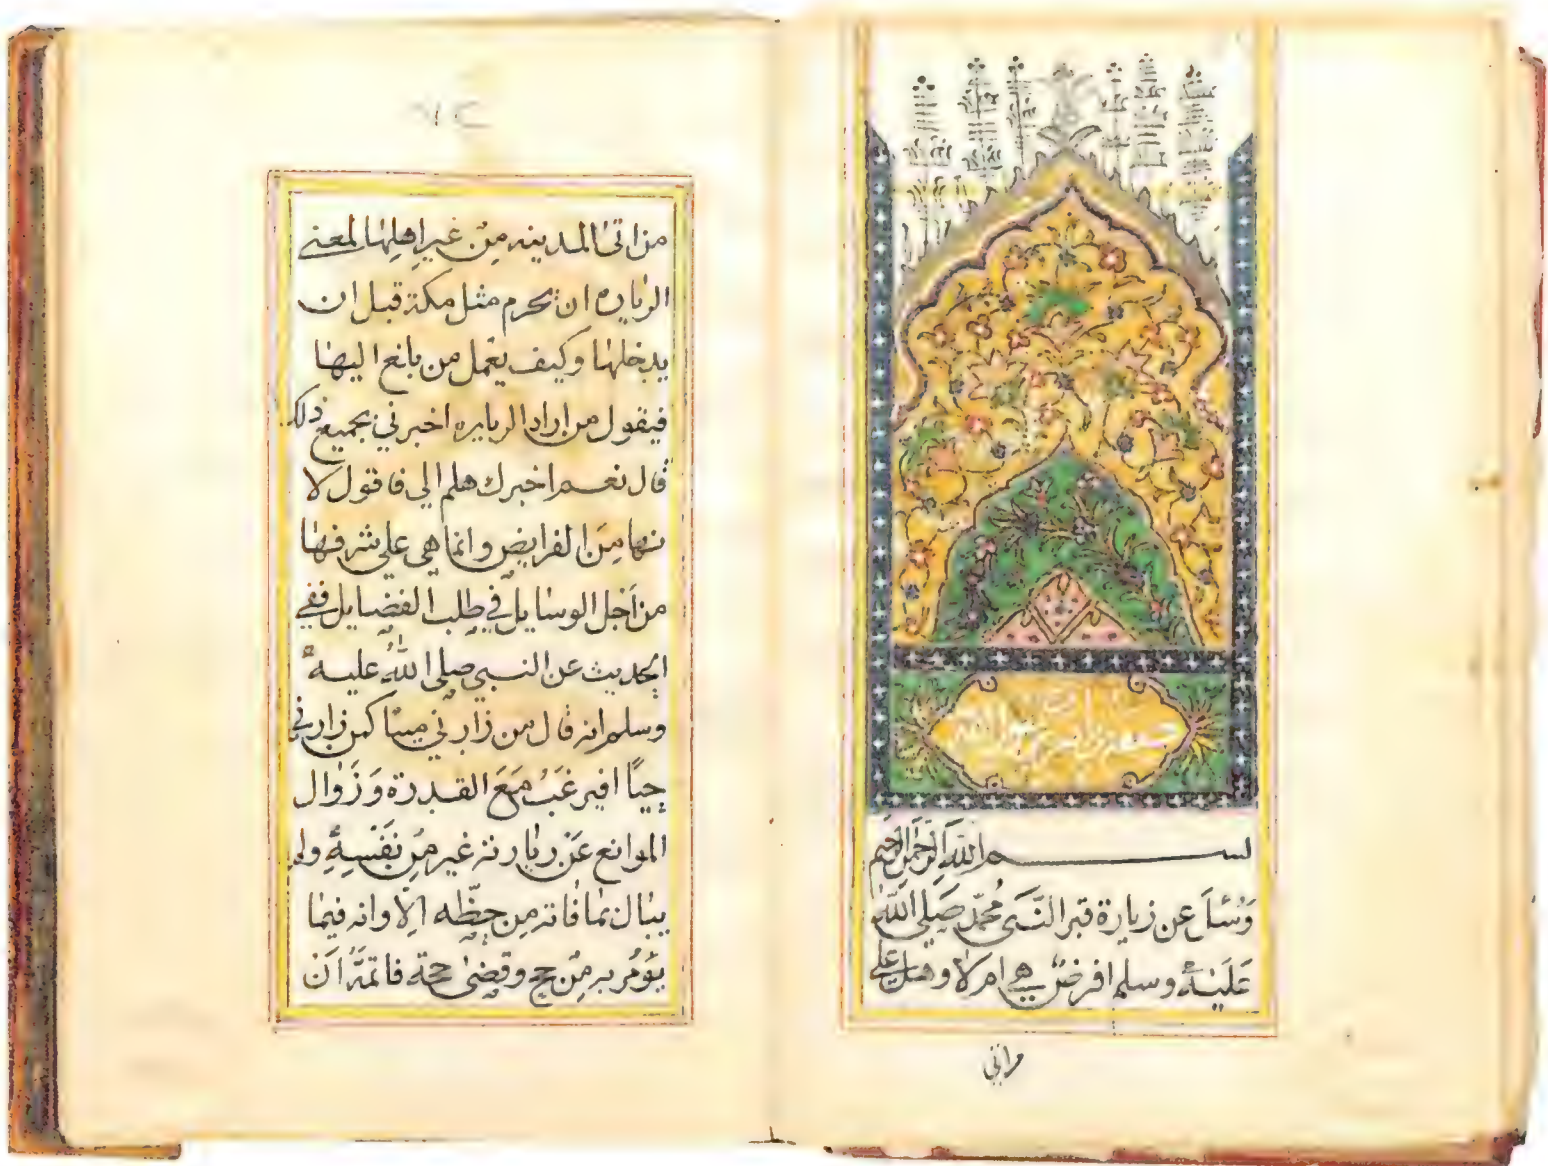 بسم الله الرحمن الرحيم
وسئل عن زيارة قبر النبي محمد صلى الله
عليه وسلم افرض هي ام لا وهل على
من اتى
من اتى المدينه من غير اهلها لمعنى
الزياره ان يحرم مثل مكة قبل ان
يدخلها وكيف يعمل من بلغ اليها
فيقول من اراد الزياره اخبرني بجميع ذلك
قال نعم اخبرك هلم الي فاقول لا
نها من الفرايض وانما هي على شرفها
من اجل الوسايل في طلب الفضايل ففي
الحديث عن النبي صلى الله عليه
وسلم انه قال من زارني ميتا كمن زارني
حيا افيرغب مع القدرة وزوال
الموانع عن زيارته غير من نفسه ولم
يبال بما فاته من حظه الا وانه فيما
يؤمر به من حج وقضى حجة فاتمه ان